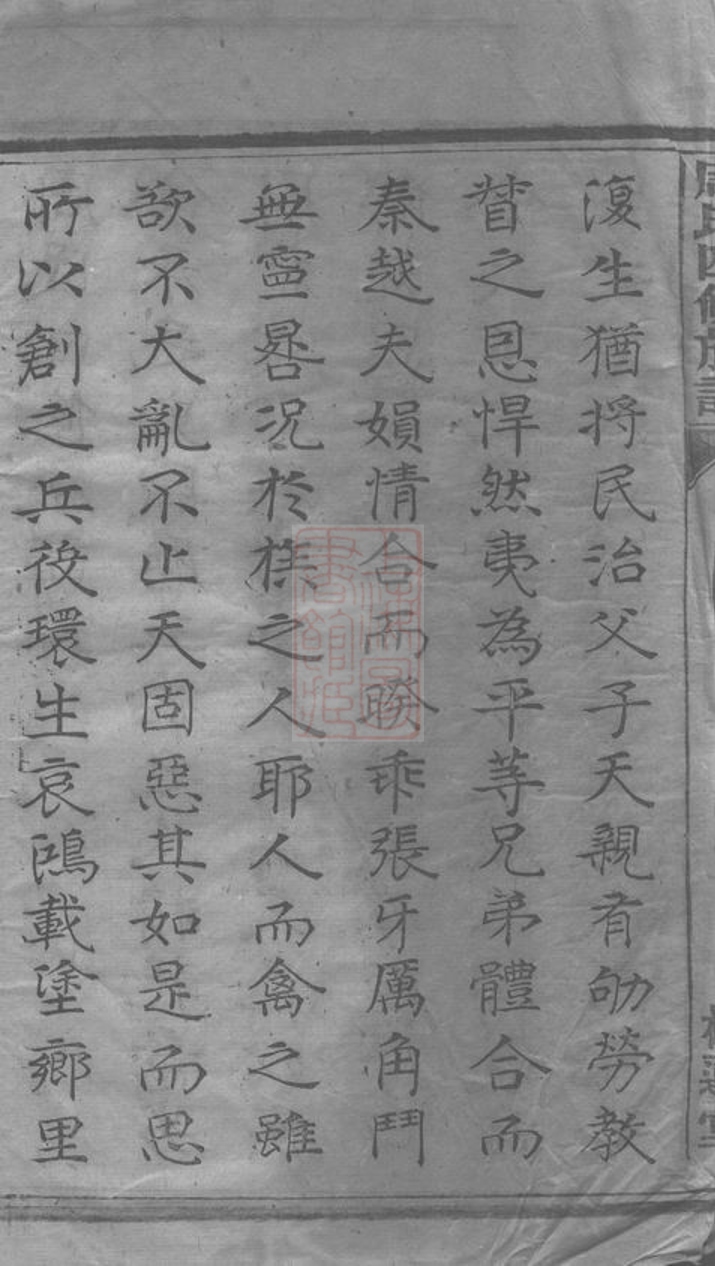 周氏四修族譜
復生猶將民治父子天親有劬勞教
督之恩悍然夷為平等兄弟體合而
秦越夫媍情合而暌乖張牙厲角鬥
無寧晷況於族之人耶人而禽之雖
欲不大亂不止天固惡其如是而思
所以創之兵役環生哀鴻載塗鄉里